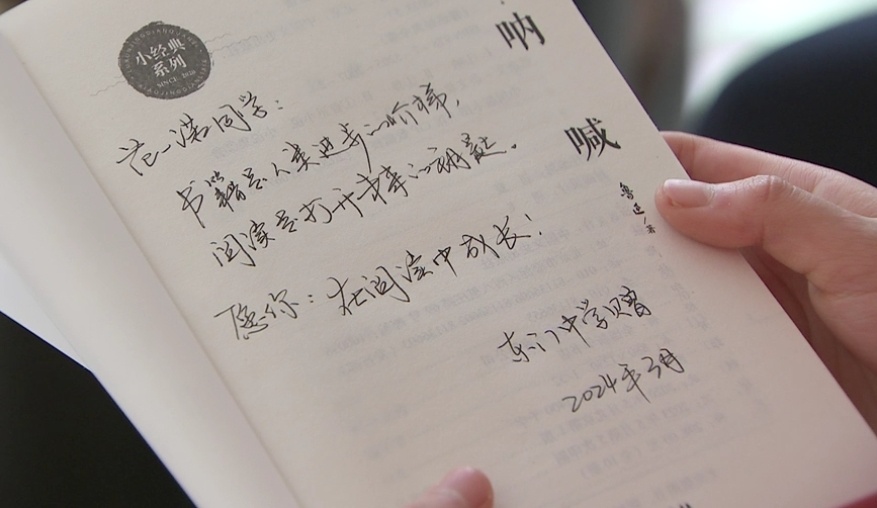 小经典
系列
SINCE 2020
呐
喊
鲁迅/著
范一诺同学：
书籍是人类进步的阶梯，
阅读是打开未来的钥匙。
愿你：在阅读中成长！
东门中学贝曾
2024年3月